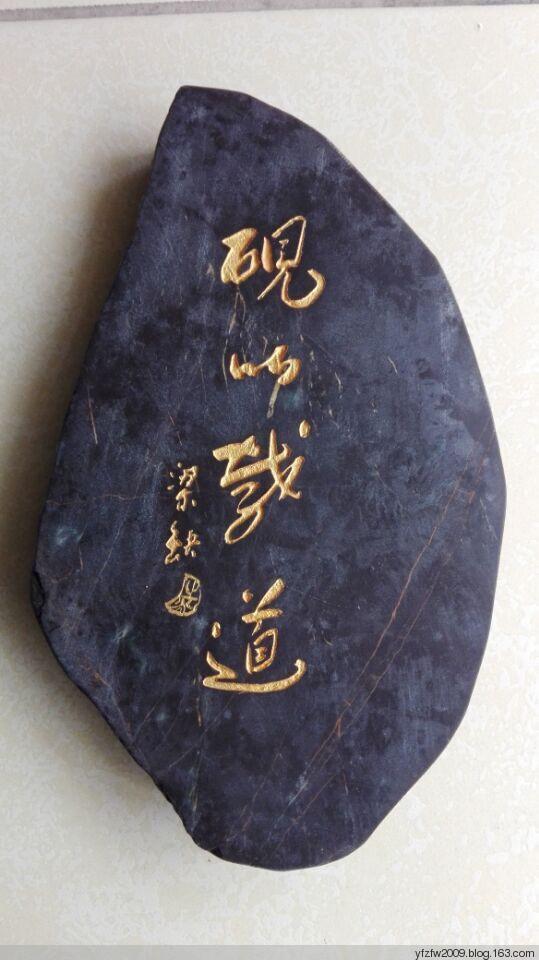 硯以載道
梁缺
yfzfw2009.blog.163.com